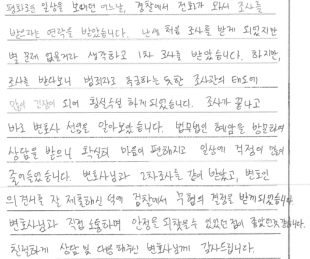 평화로운 일상을 보내던 어느날, 경찰에서 전화가 와서 조사를
받으라는 연락을 받았습니다. 난생 처음 조사를 받게 되었지만
별 문제 없을거라 생각하고 1차 조사를 받았습니다. 하지만,
조사를 받다보니 범죄자로 취급하는 듯한 조사관의 태도에
많이 긴장이 되어 횡설수설 하게 되었습니다. 조사가 끝나고
바로 변호사 선임을 알아보았습니다. 법무법인 혜암을 방문하여
상담을 받으니 확실히 마음이 편해지고 일상에 걱정이 많이
줄어들었습니다. 변호사님과 2차조사를 같이 받았고, 변호인
의견서를 잘 제출해주신 덕에 검찰에서 무혐의 결정을 받게되었습니다
변호사님과 직접 소통하며 안정을 되찾을수 있었던 점이 좋았던것 같습니다.
친절하게 상담 및 대응해주신 변호사님께 감사드립니다.